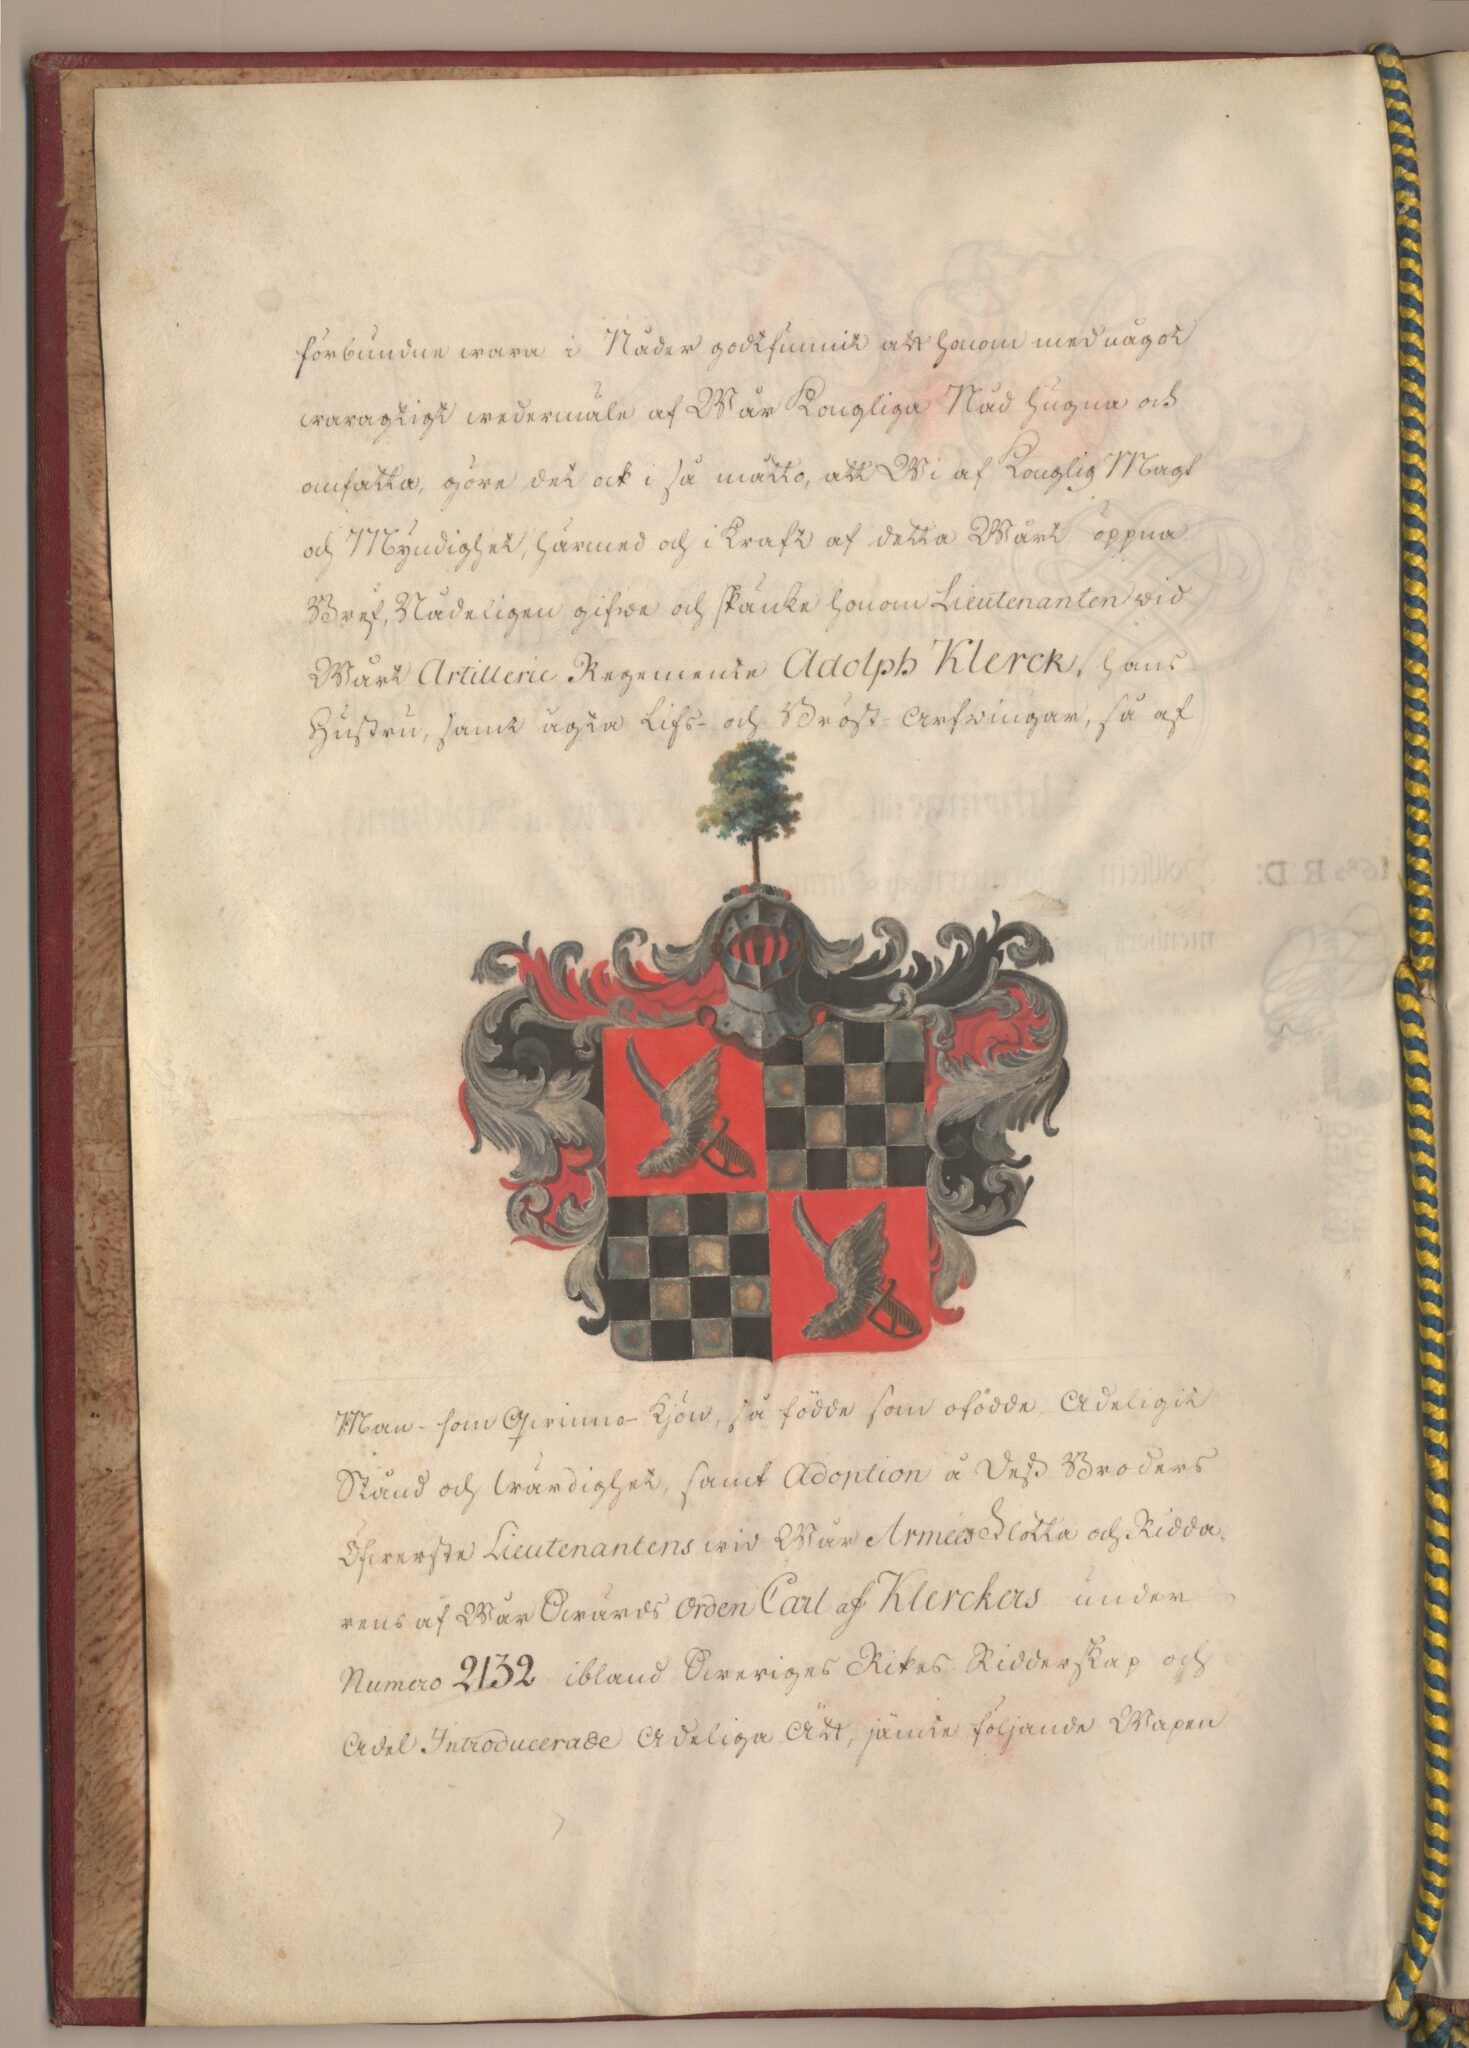 förbundne wara i Nåder godtfunnit att honom med något
waragtigt wedermäle af Wår Kongliga Nåd hugna och
omfatta, göre det ock i så matto, att Wi af Konglig Magt
och Myndighet, härmed och i Kraft af detta Wårt öppna
Bref, Nådeligen gifwe och skänke honom Lieutenanten wid
Wårt Artillerie Regemente Adolph Klerck, hans
Hustru, samt ägta Lifs- och Bröst-Arfwingar, så af
Man- som Qwinno-Kjön, så födde som ofödde Adeligit
Stånd och wärdighet, samt Adoption å Dess Broders
Öfwerste Lieutenantens wid Wår Armées Flotta och Ridda-
rens af Wår Swärds Orden Carl af Klerckers under
Numero 2132 ibland Sweriges Rikes Ridderskap och
Adel Introducerade Adeliga Ätt, jämte följande Wapen